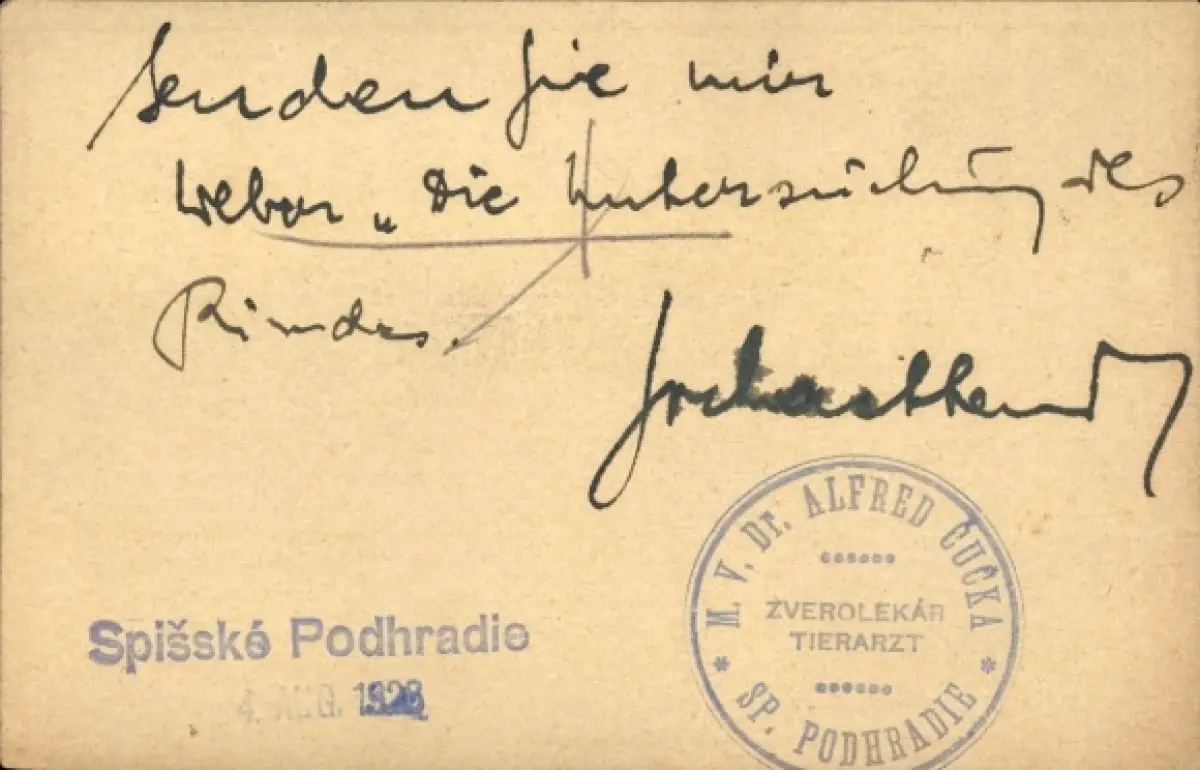 Senden Sie mir
Weber „Die Untersuchung des
Rindes.
Hochachtend
M. V. Dr. ALFRED ČUČKA
ZVEROLEKÁR
TIERARZT
* SP. PODHRADIE *
Spišské Podhradie
4. AUG.